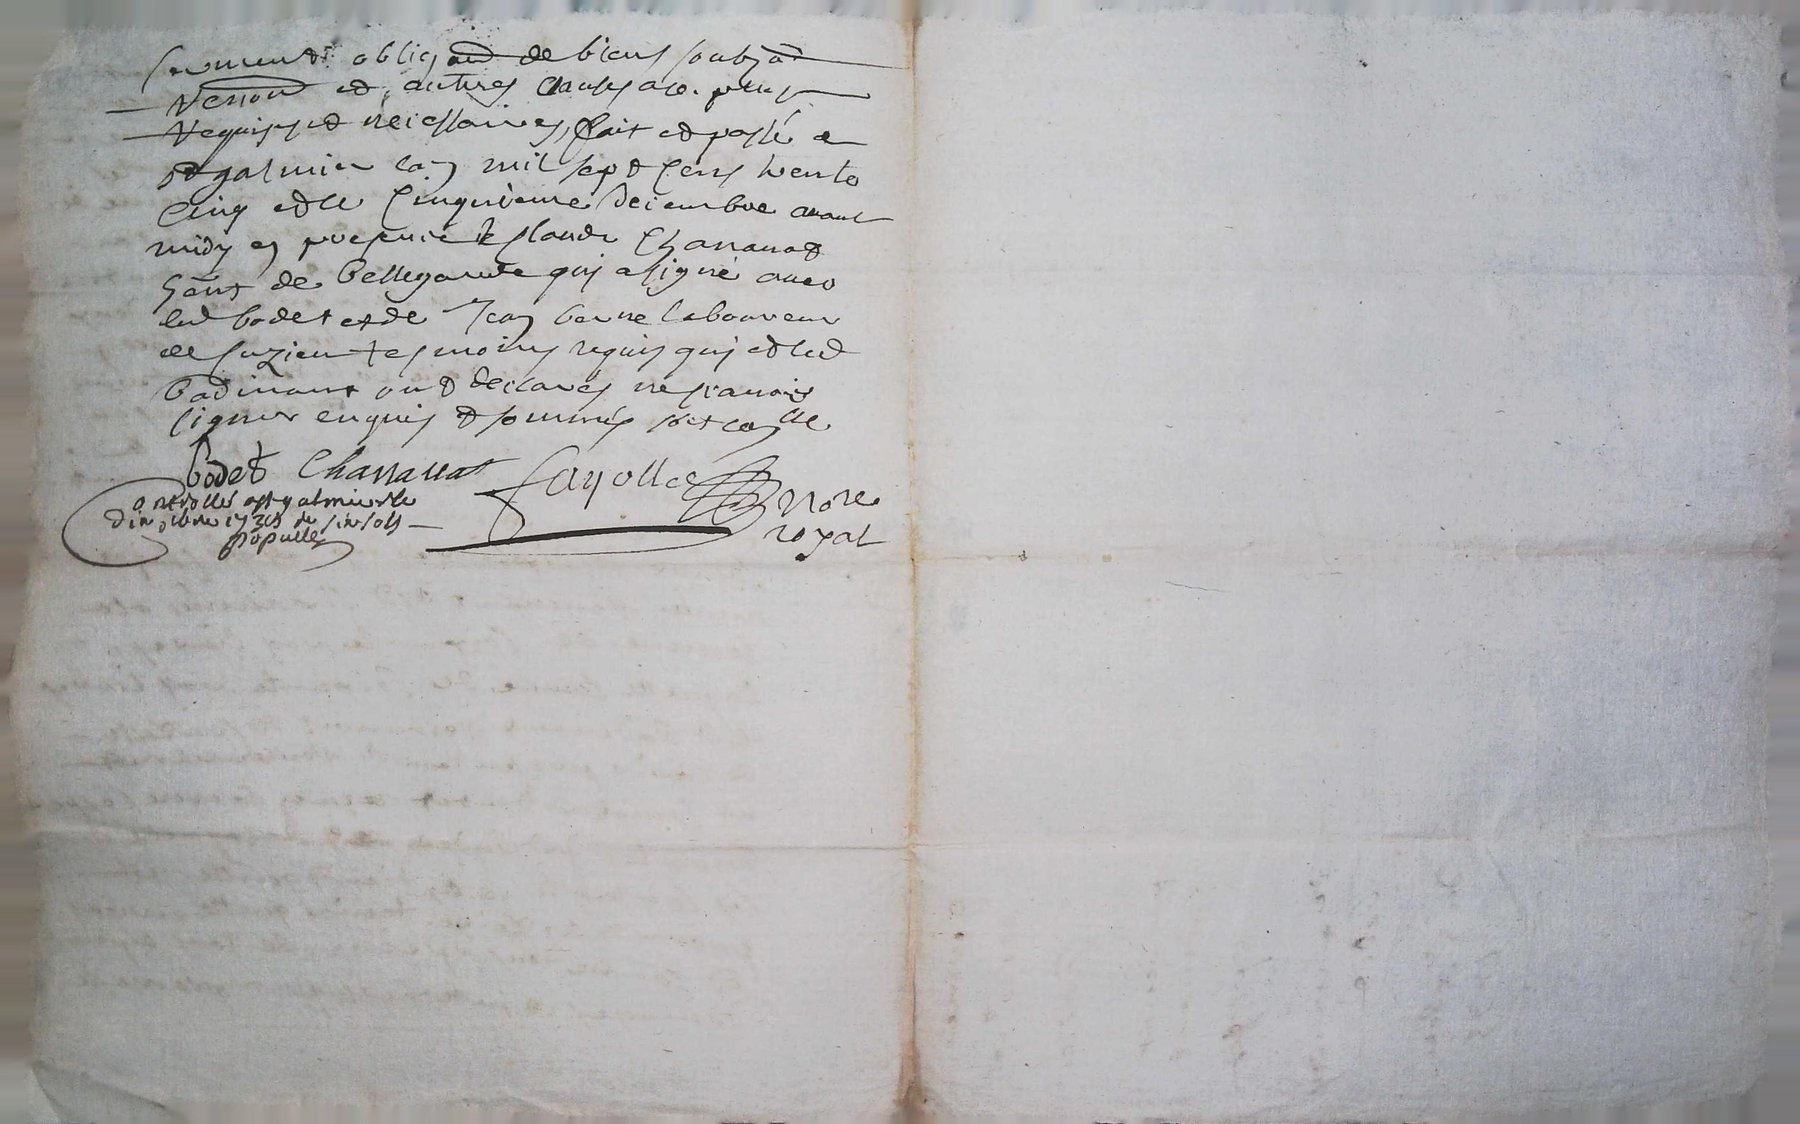 serment obligaon de biens soubzon
renon et autres clauses a ce. pnt
requises et necessaires, fait et passé a
st galmier lan mil sept cens trente
cinq et le cinquieme decembre avant
midy en presence de Claude Chavanat
hant de Bellegarde qui a signé avec
led bodet et de Jean berne laboureur
de Suzieu tesmoins requis qui et led
badinant ont declarés ne scavoir
signer enquis et sommés
bodet Chavanat fayolle nore
royal
Controllé a st galmier le
dix xbre 1735 six sols